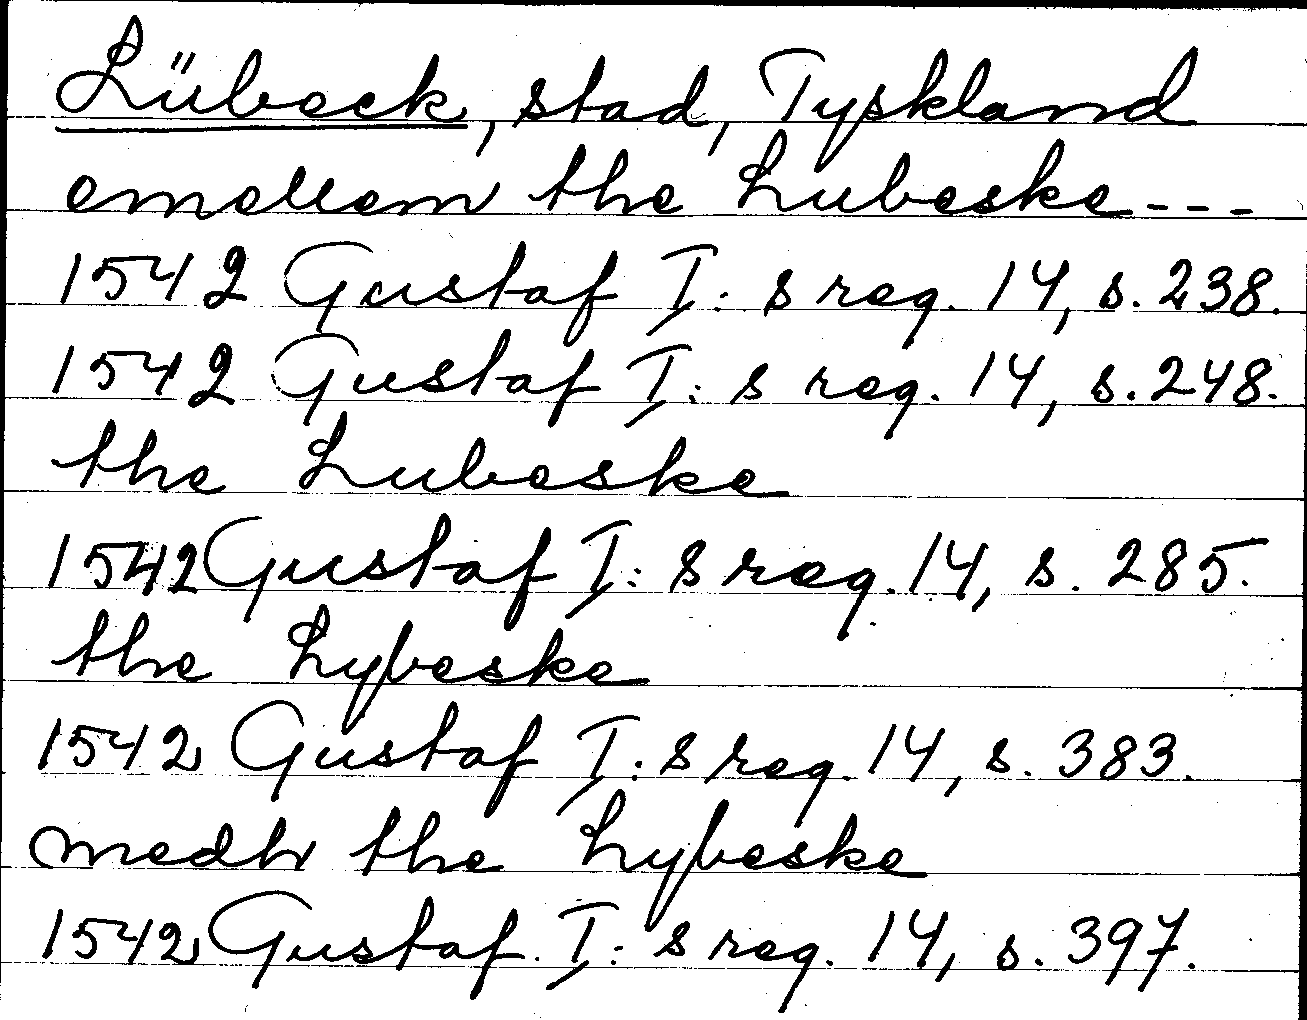 Lübeck, stad, Tyskland
emellem the Lubeske---
1542 Gustaf I: s reg. 14, s. 238.
1542 Gustaf I: s reg. 14, s. 248.
the Lubeske
1542 Gustaf I: s reg. 14, s. 285.
the Lybeske
1542 Gustaf I: s reg. 14, s. 383.
medh the Lybeske
1542 Gustaf I: s reg. 14, s. 397.